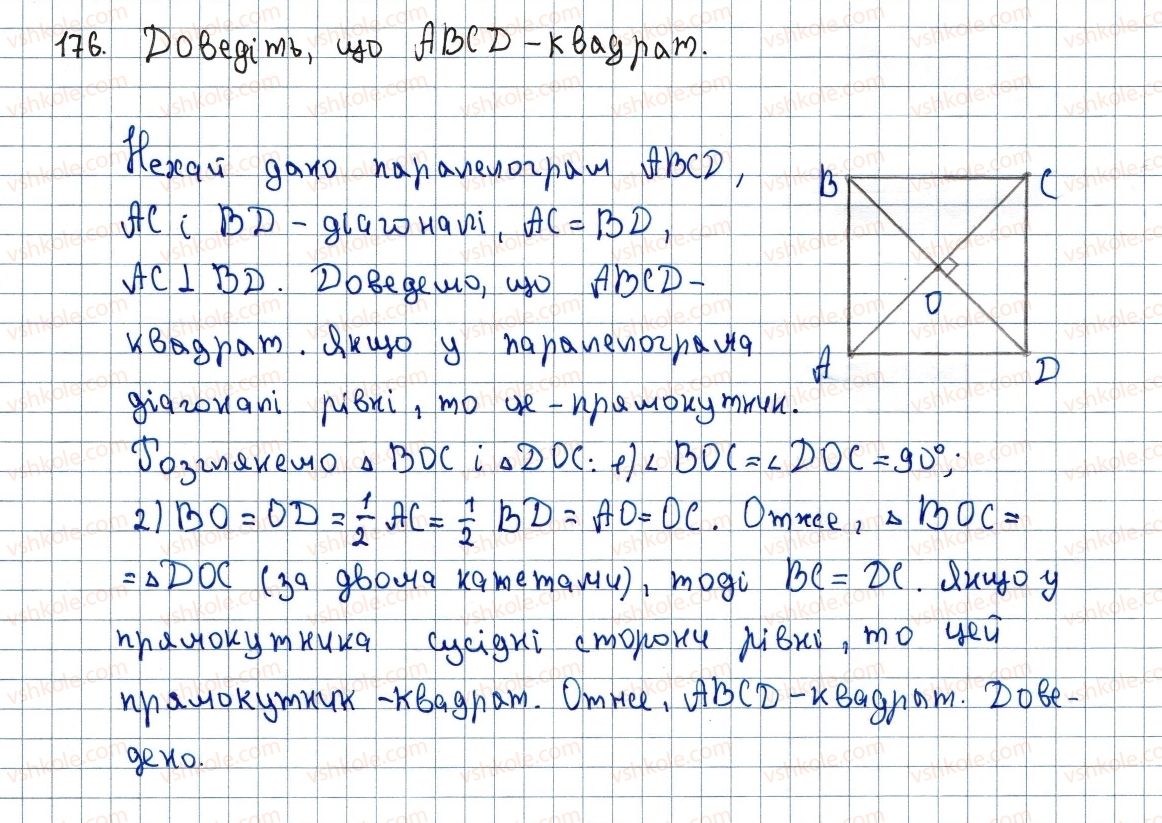 176. Доведіть, що ABCD - квадрат.
Нехай дано паралелограм ABCD,
AC і BD - діагоналі, AC = BD,
AC ⊥ BD. Доведемо, що ABCD -
квадрат. Якщо у паралелограма
діагоналі рівні, то це - прямокутник.
Розглянемо △ BOC і △ DOC: 1) ∠ BOC = ∠ DOC = 90°;
2) BO = OD = 1/2 AC = 1/2 BD = AO = OC. Отже, △ BOC =
= △ DOC (за двома катетами), тоді BC = DC. Якщо у
прямокутника сусідні сторони рівні, то цей
прямокутник - квадрат. Отже, ABCD - квадрат. Дове-
дено.
B C
O
A D
vshkole.com